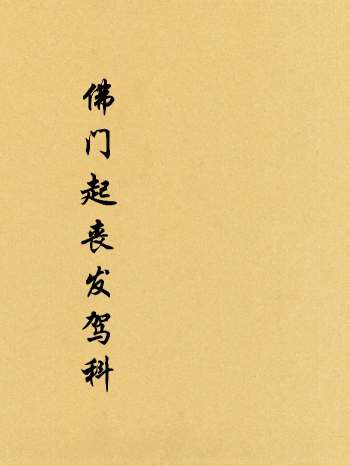 佛门起丧发驾科